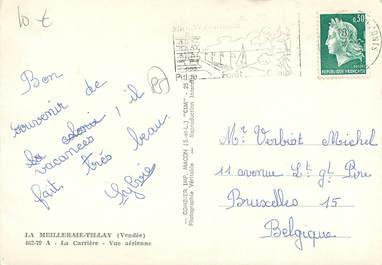 10 €
Bon
souvenir de
vacances ! il
fait très beau.
Sylvie
LA MEILLERAIE-TILLAY (Vendée)
862-79 A - La Carrière - Vue aérienne
COMBIER IMP. MACON (S.-et-L.) "CIM"
Photographie Véritable - Reproduction interdite
Forêt
0,30
REPUBLIQUE FRANÇAISE
Mr Verbiot Michel
11 avenue Lt gl Pire
Bruxelles 15
Belgique